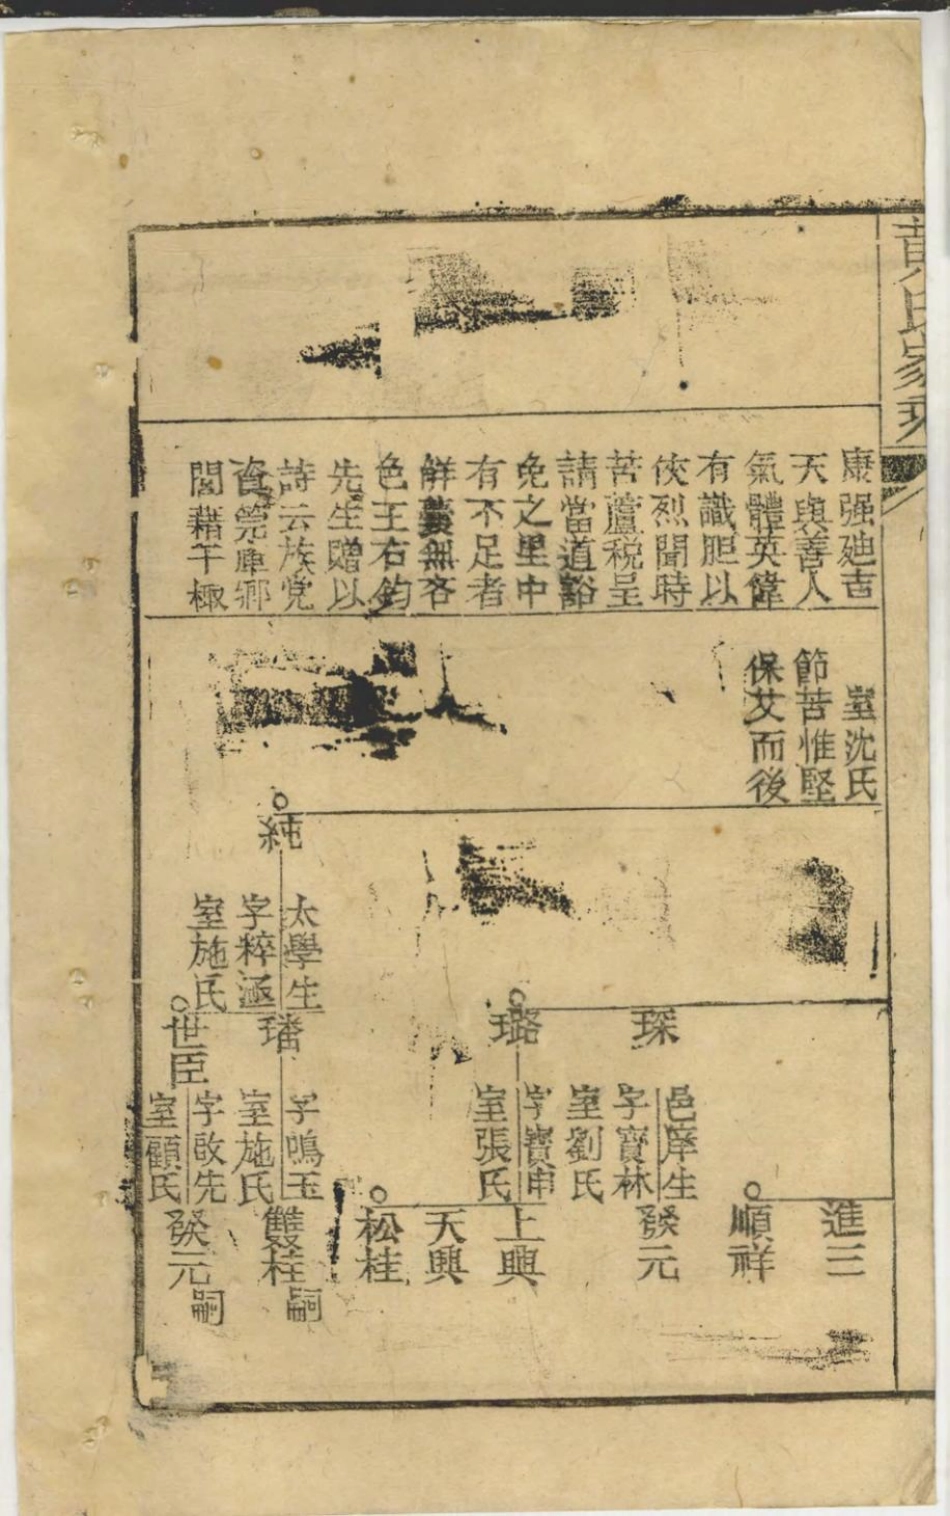 黄氏家乘
康强廸吉
天與善人
氣體英偉
有識胆以
俠烈聞時
苦蘆税呈
請當道豁
免之里中
有不足者
解囊無吝
色王右鈞
先生贈以
詩云族党
資筦庫鄉
閭藉干棷
室沈氏
節苦惟堅
保艾而後
純
太學生
字粹涵
室施氏
琛
邑庠生
字寶林
室劉氏
璐
字寶申
室張氏
璠
字鳴玉
室施氏
世臣
字啟先
室顧氏
進三
順祥
發元
上興
天興
松桂
雙桂嗣
發元嗣